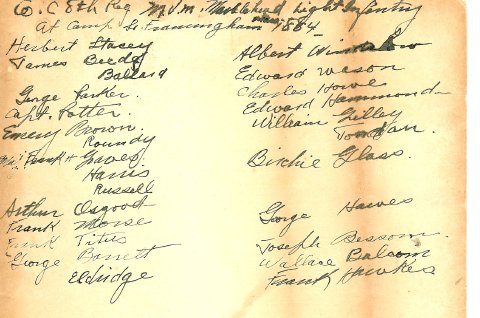 Co. C 8th Reg M.V.M. Marblehead Light Infantry
At Camp Framingham Mass 1884
Herbert Stacey
James Beede
Ballard
George Parker.
Capt. Potter.
Emery Brown.
Roundy
Frank H Graves.
Harris
Russell
Arthur Osgood
Frank Morse
Frank Titus
George Barrett
Eldridge
Albert Winslow
Edward Wason
Charles Howe
Edward Hammond
William Gilley
Birchie Glass.
George Hawes
Joseph Bessom.
Wallace Balcom
Frank Hawkes